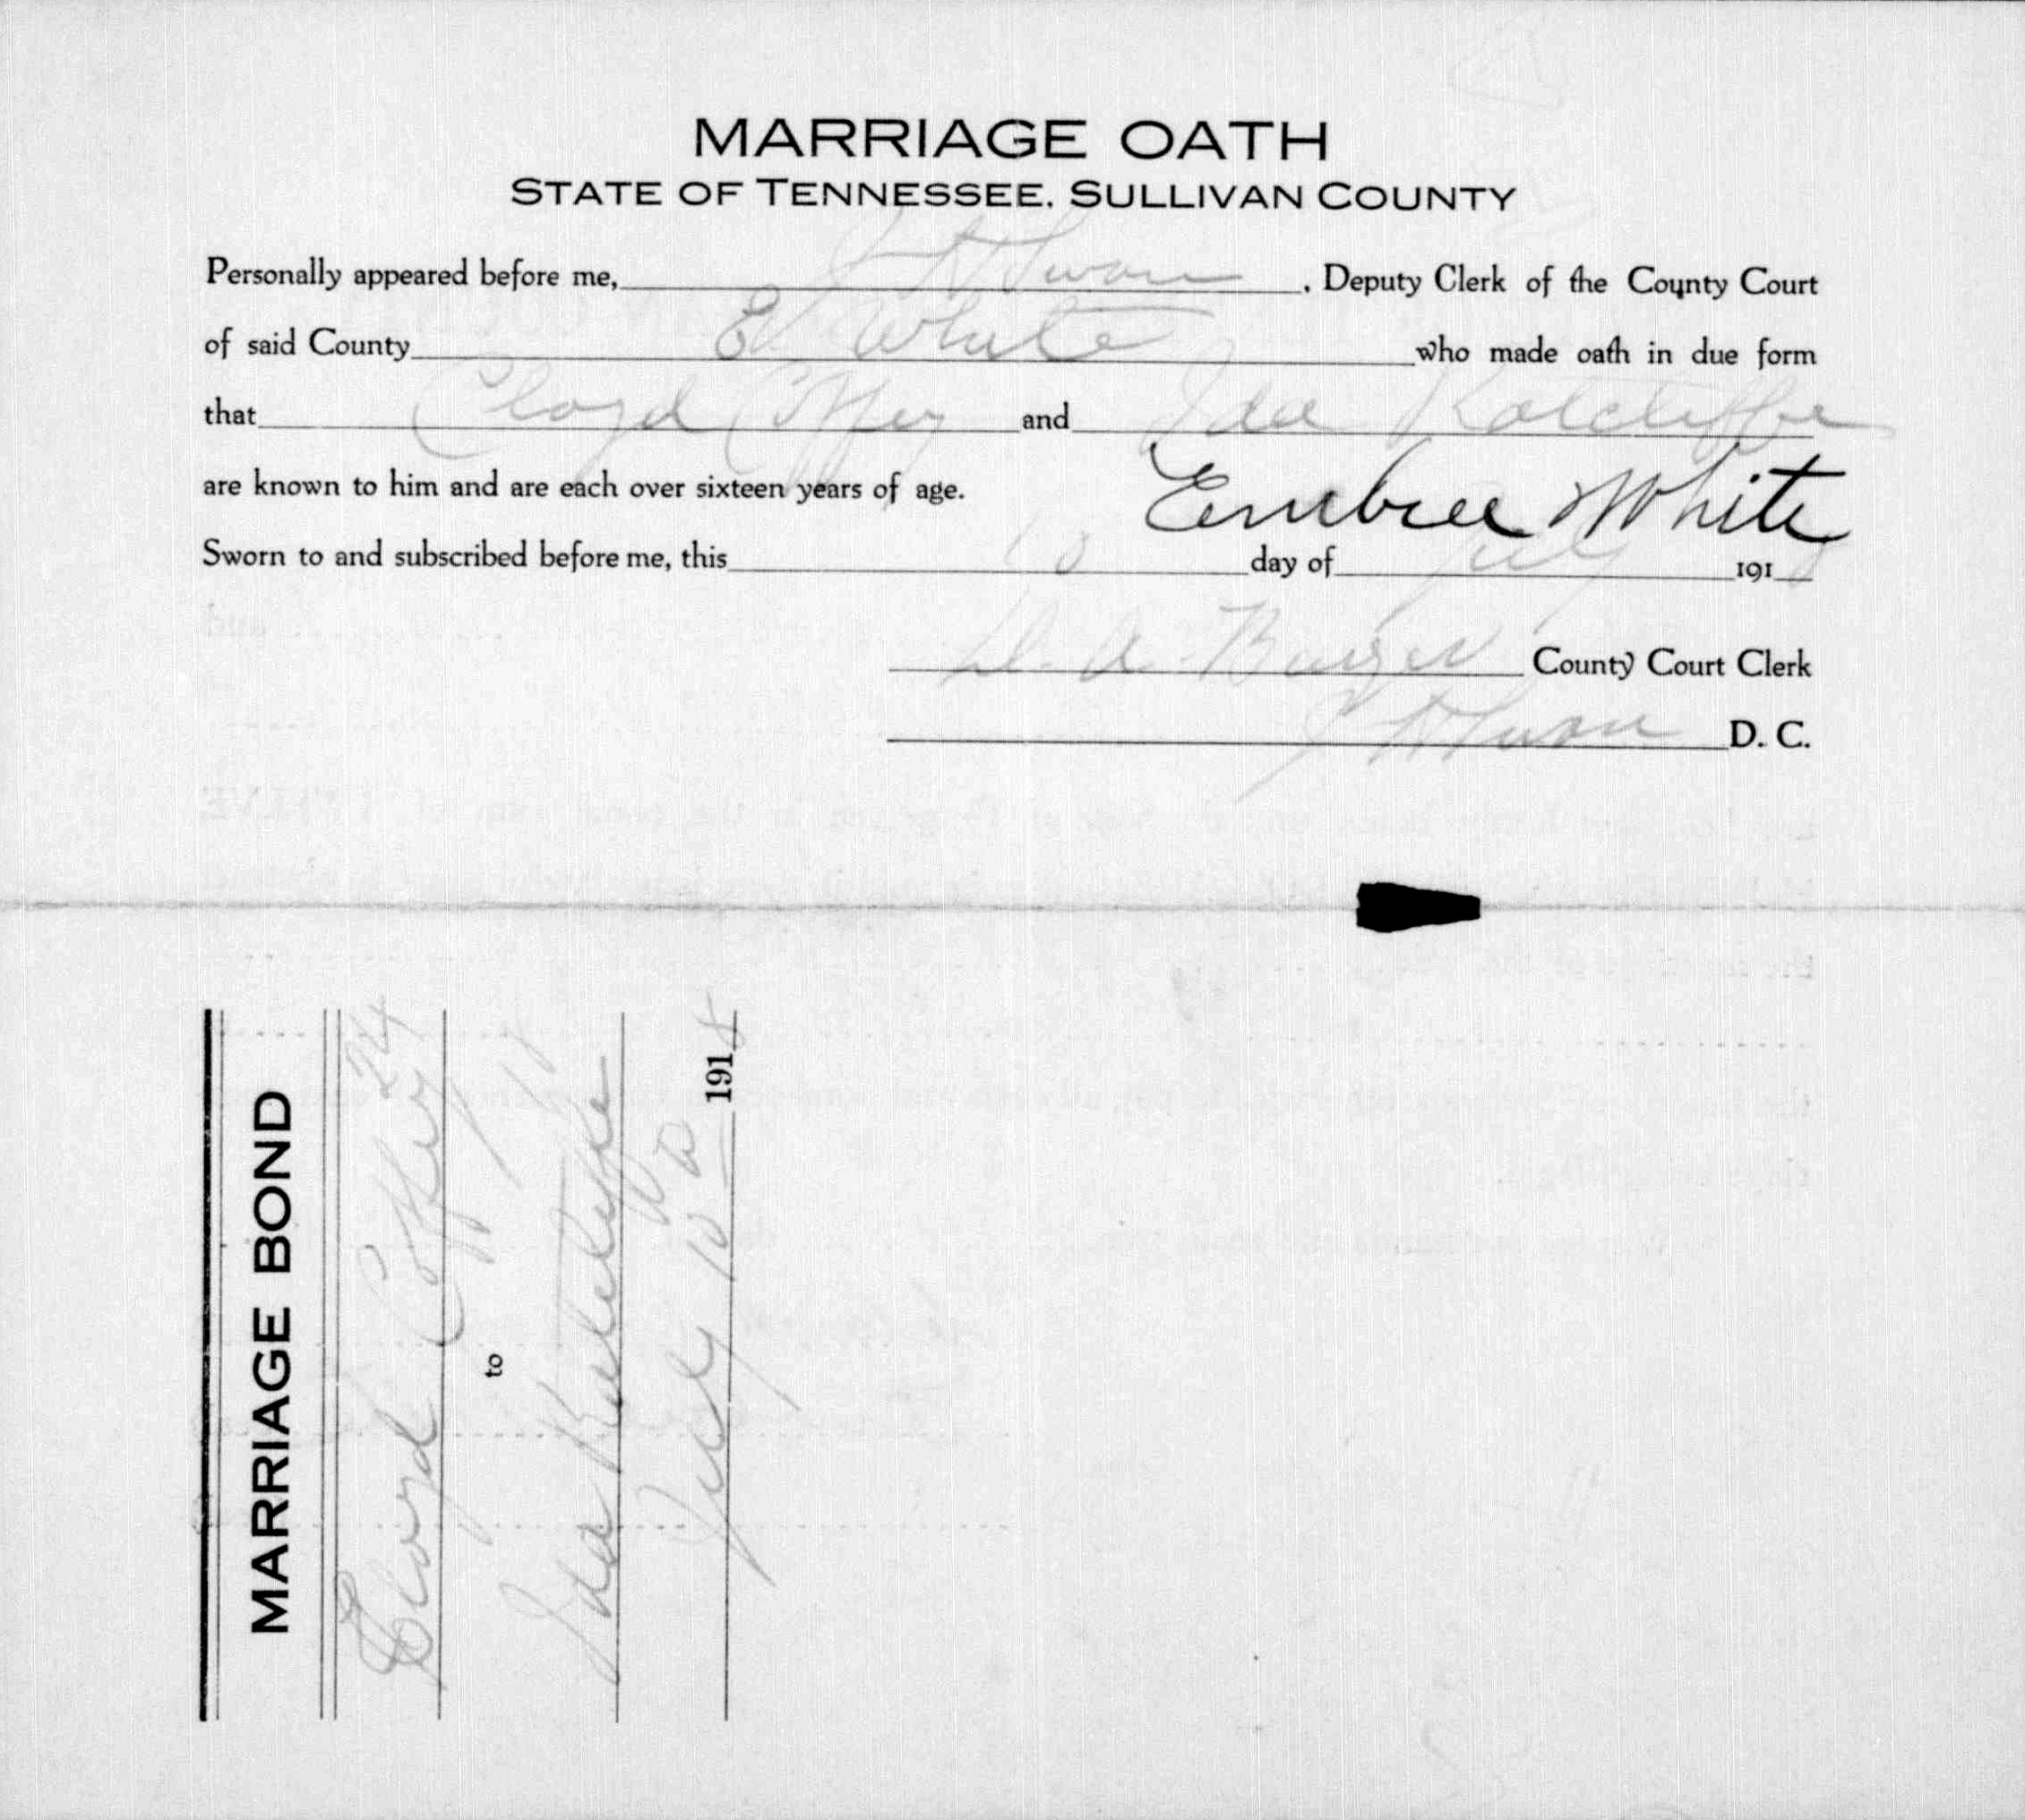 MARRIAGE OATH
STATE OF TENNESSEE, SULLIVAN COUNTY
Personally appeared before me, J H Swan, Deputy Clerk of the County Court
of said County E White who made oath in due form
that Cloyd Coffey and Ida Ratcliffe
are known to him and are each over sixteen years of age.
Embree White
Sworn to and subscribed before me, this 10 day of July 191
County Court Clerk
Swan D. C.
MARRIAGE BOND
Cloyd Coffey 24
to
Ida Ratcliffe
July 10 1918